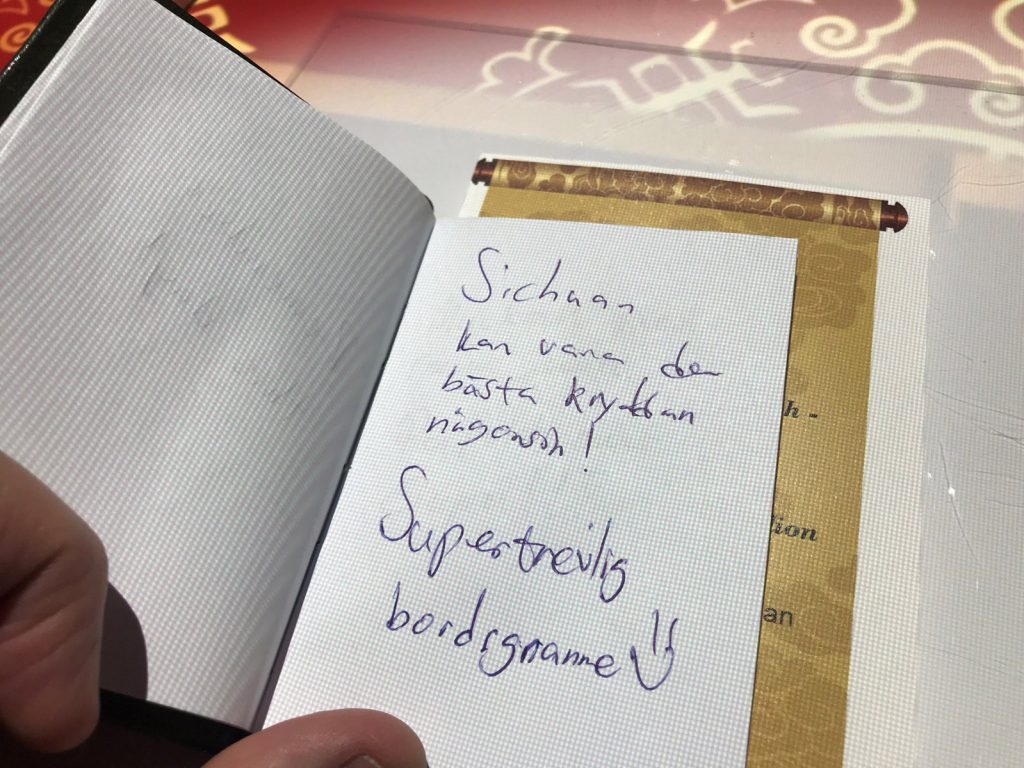 Sichuan
kan vara den
bästa kryddan
någonsin!
Supertrevlig
bordsgranne
h -
ion
an